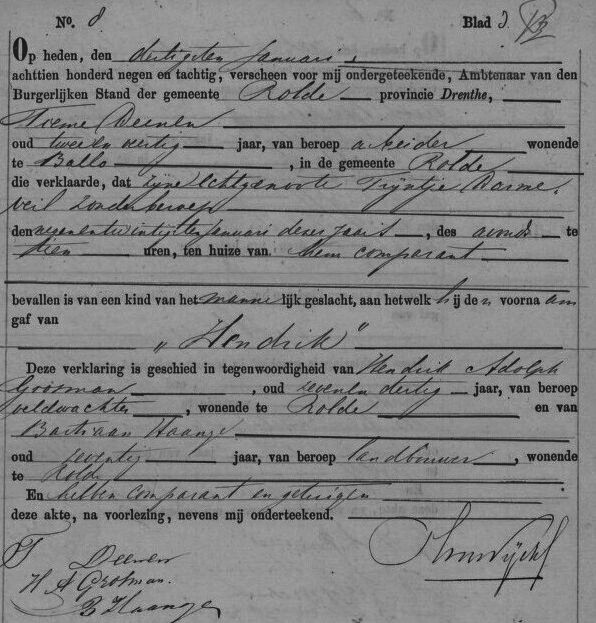 No. 8 Blad 3
Op heden, den dertigsten Januari,
achttien honderd negen en tachtig, verscheen voor mij ondergeteekende, Ambtenaar van den
Burgerlijken Stand der gemeente Rolde provincie Drenthe,
Deenen
oud twee en veertig jaar, van beroep arbeider wonende
te Ballo, in de gemeente Rolde
die verklaarde, dat zijne Echtgenoote Trijntje Darme-
veil zonder beroep
den negenentwintigsten Januari dezes jaars, des avonds te
tien uren, ten huize van hem comparant
bevallen is van een kind van het mannelijk geslacht, aan hetwelk hij den voornaam
gaf van
„Hendrik"
Deze verklaring is geschied in tegenwoordigheid van Hendrik Adolph
Grotman, oud zevenendertig jaar, van beroep
veldwachter, wonende te Rolde en van
Bastiaan Haange
oud zeventig jaar, van beroep landbouwer, wonende
te Rolde
En hebben comparant en getuigen
deze akte, na voorlezing, nevens mij onderteekend.
T Deenen
H A Grotman.
B Haange